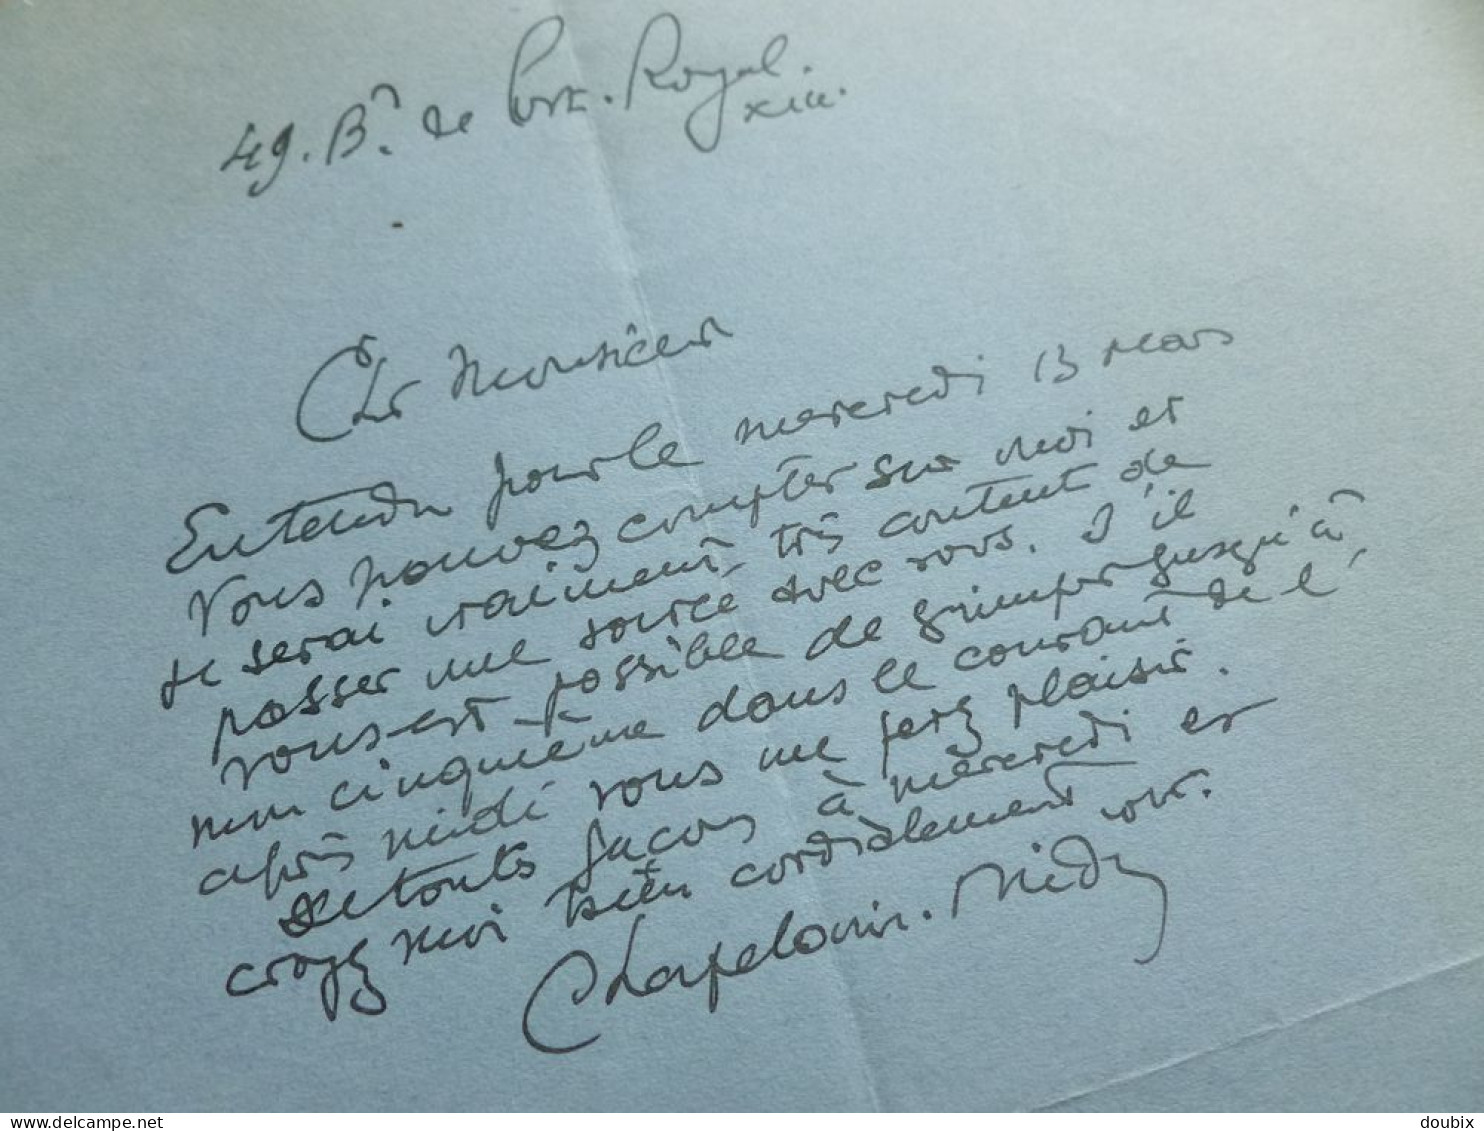 49. Bd. de Port. Royal.
xiii.
Cher Monsieur
Entendu pour le mercredi 13 mars
Vous pouvez compter sur moi et
je serai vraiment très content de
passer une soirée avec vous. S'il
vous est possible de grimper jusqu'à
mon cinquième dans le courant de l'
après midi vous me ferez plaisir.
De toutes façons à mercredi et
croyez moi bien cordialement vôtre.
Chapelain. Midy
delcampe.net
doubix